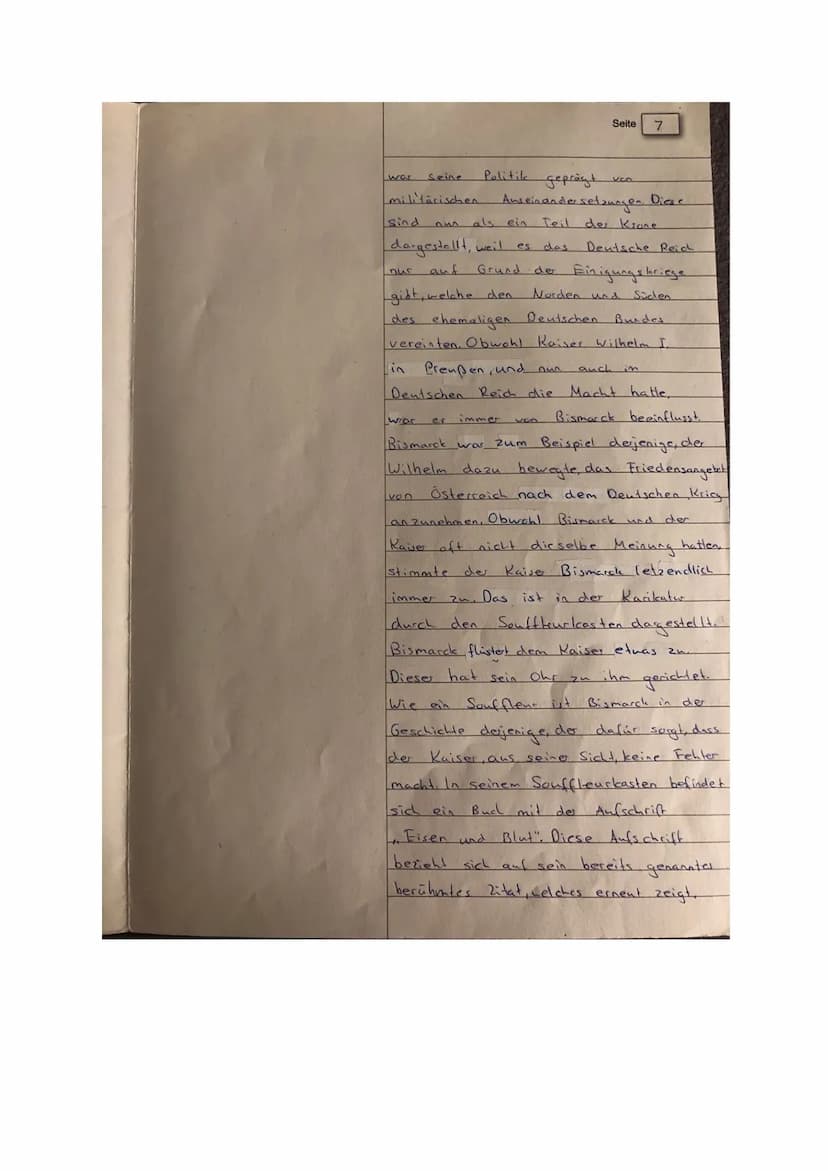 Seite 7
war seine Politik geprägt von
militärischen Auseinandersetzungen. Diese
sind nun als ein Teil der Krone
dargestellt, weil es das Deutsche Reich
nur auf Grund der Einigungskriege
gibt, welche den Norden und Süden
des ehemaligen Deutschen Bundes
vereinten. Obwohl Kaiser Wilhelm I.
in Preußen, und nun auch im
Deutschen Reich die Macht hatte,
war er immer von Bismarck beeinflusst.
Bismarck war zum Beispiel derjenige, der
Wilhelm dazu bewegte, das Friedensangebot
von Österreich nach dem Deutschen Krieg
anzunehmen. Obwohl Bismarck und der
Kaiser oft nicht dieselbe Meinung hatten,
stimmte der Kaiser Bismarck letzendlich
immer zu. Das ist in der Karikatur
durch den Souffleurkasten dagestellt.
Bismarck flüstert dem Kaiser etwas zu.
Dieser hat sein Ohr zu ihm gerichtet.
Wie ein Souffleur ist Bismarck in der
Geschichte derjenige, der dafür sorgt, dass
der Kaiser, aus seiner Sicht, keine Fehler
macht. In seinem Souffleurkasten befindet
sich ein Buch mit der Aufschrift
„Eisen und Blut". Diese Aufschrift
bezieht sich auf sein bereits genanntes
berühmtes Zitat, welches erneut zeigt,